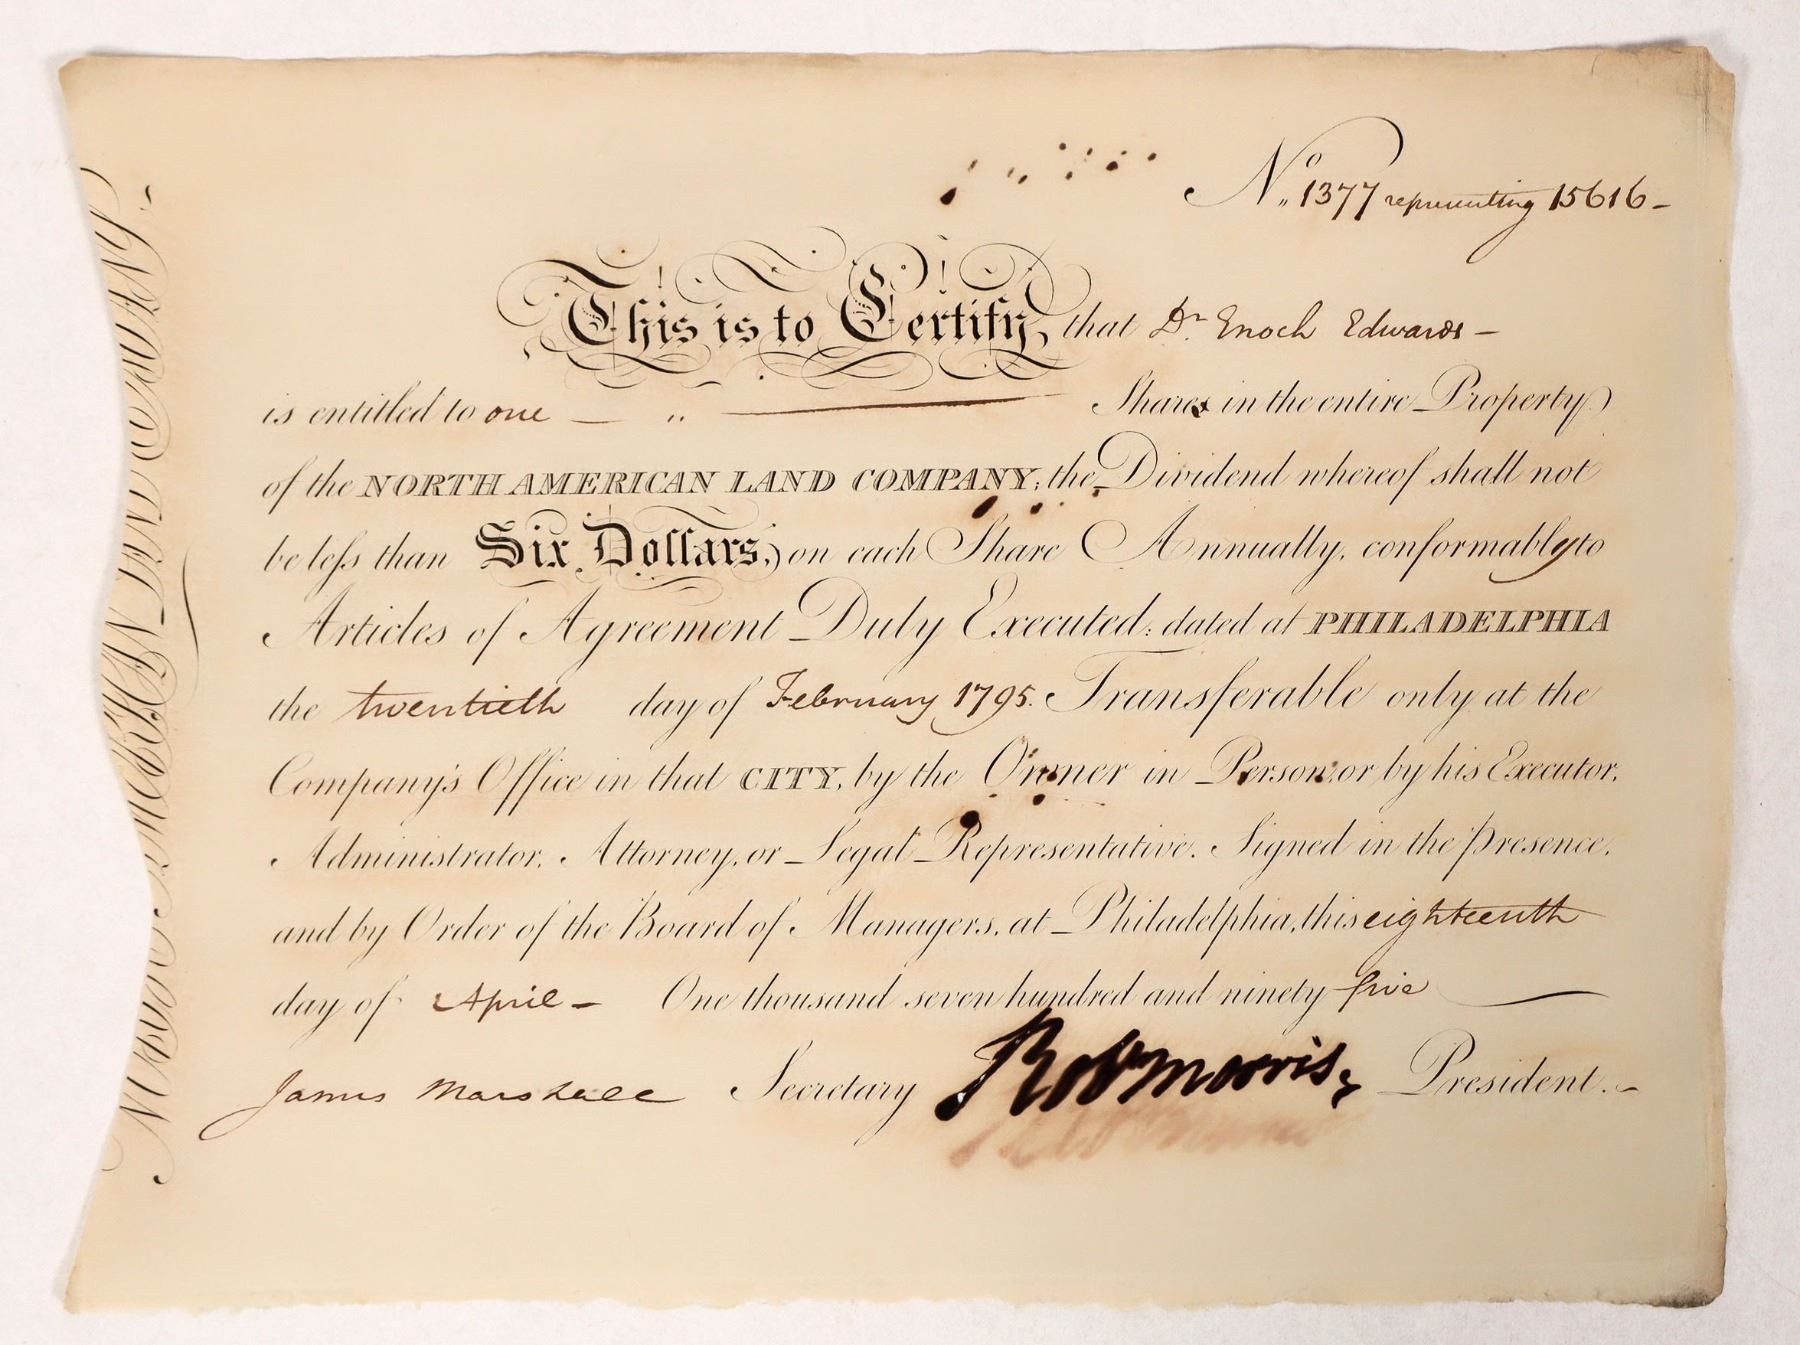 No. 1377 representing 15616-
This is to Certify, that Dr. Enoch Edwards -
is entitled to one Shares in the entire Property
of the NORTH AMERICAN LAND COMPANY; the Dividend whereof shall not
be less than Six Dollars, on each Share Annually, conformably to
Articles of Agreement Duly Executed: dated at PHILADELPHIA
the twentieth day of February 1795. Transferable only at the
Company's Office in that CITY, by the Owner in Person, or by his Executor,
Administrator, Attorney, or Legal Representative. Signed in the presence,
and by Order of the Board of Managers, at Philadelphia, this eighteenth
day of April - One thousand seven hundred and ninety five
James Marshall Secretary Rob Morris, President.
NORTH AMERICAN LAND COMPANY.